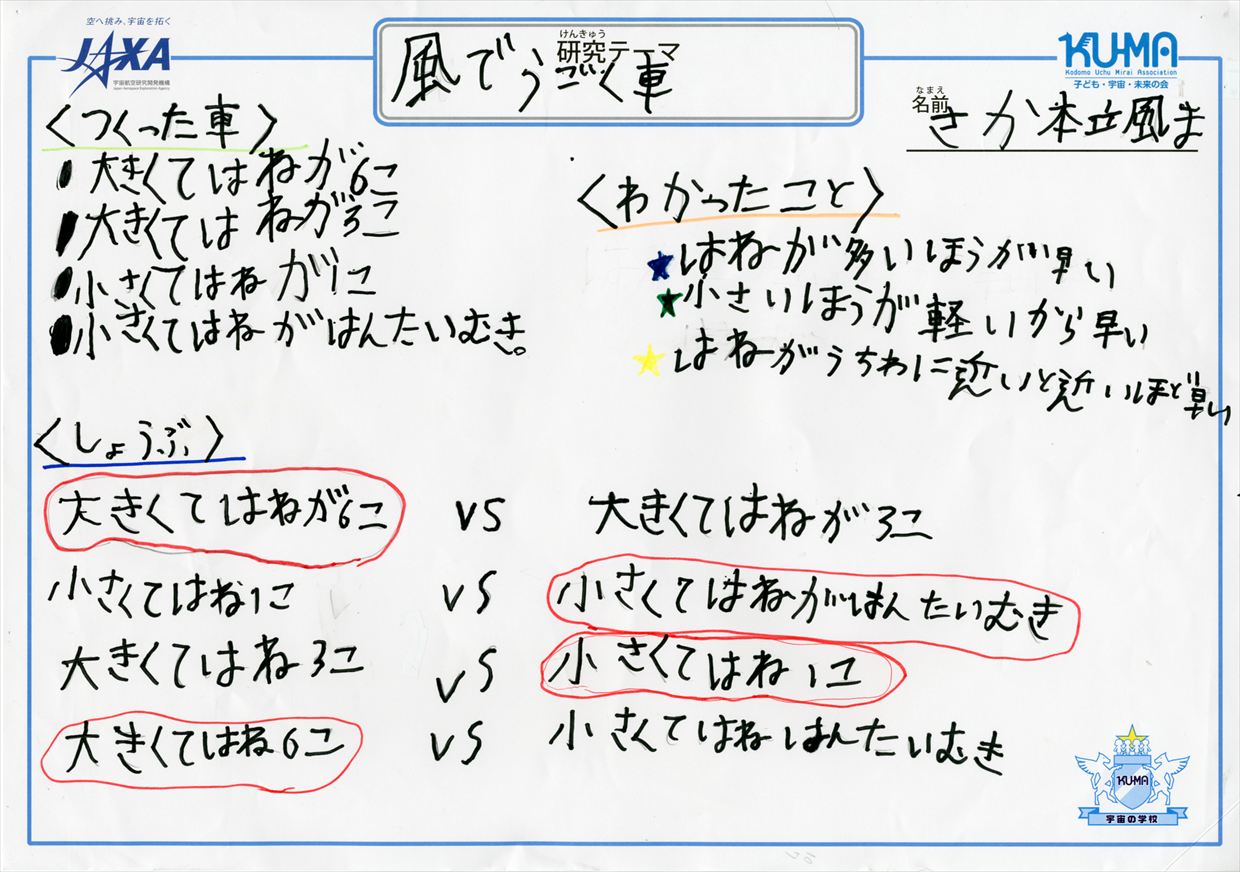 空へ挑み、宇宙を拓く
JAXA
宇宙航空研究開発機構
Japan Aerospace Exploration Agency
けんきゅう
研究テーマ
風でうごく車
KU-MA
Kodomo Uchu Mirai Association
子ども・宇宙・未来の会
なまえ
名前
さか本立風ま
〈つくった車〉
大きくてはねが6こ
大きくてはねが3こ
小さくてはねが1こ
小さくてはねがはんたいむき。
〈わかったこと〉
★はねーが多いほうが早い
★小さいほうが軽いから早い
★はねーがうちわに近いと近いほど早い
〈しょうぶ〉
大きくてはねが6こ vs 大きくてはねが3こ
小さくてはね1こ vs 小さくてはねがはんたいむき
大きくてはね3こ vs 小さくてはね1こ
大きくてはね6こ vs 小さくてはねはんたいむき
KU-MA
宇宙の学校